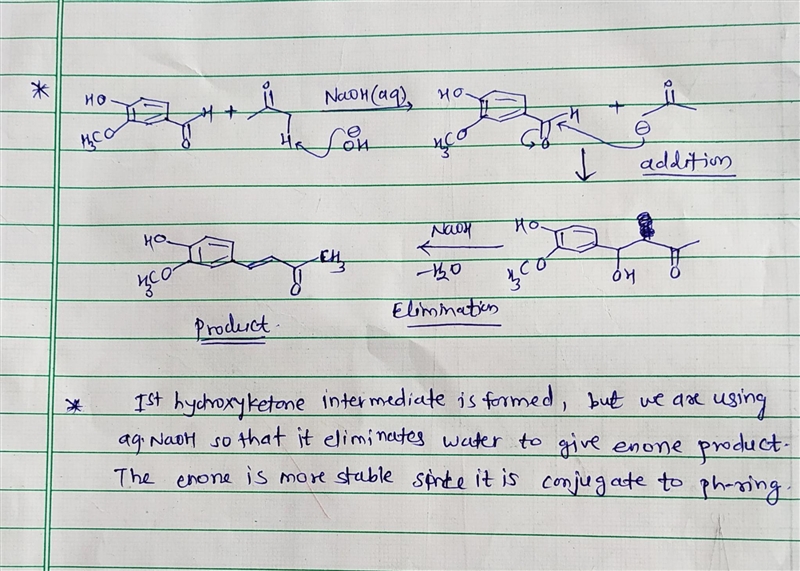 * HO H + O NaOH(aq) HO H + O
H₃CO O H ⊖OH H₃CO O ⊖ addition
HO CH₃ NaOH HO
H₃CO O -H₂O H₃CO OH O
Product. Elimination
* Ist hydroxyketone intermediate is formed, but we are using
aq. NaOH so that it eliminates water to give enone product.
The enone is more stable since it is conjugate to ph-ring.